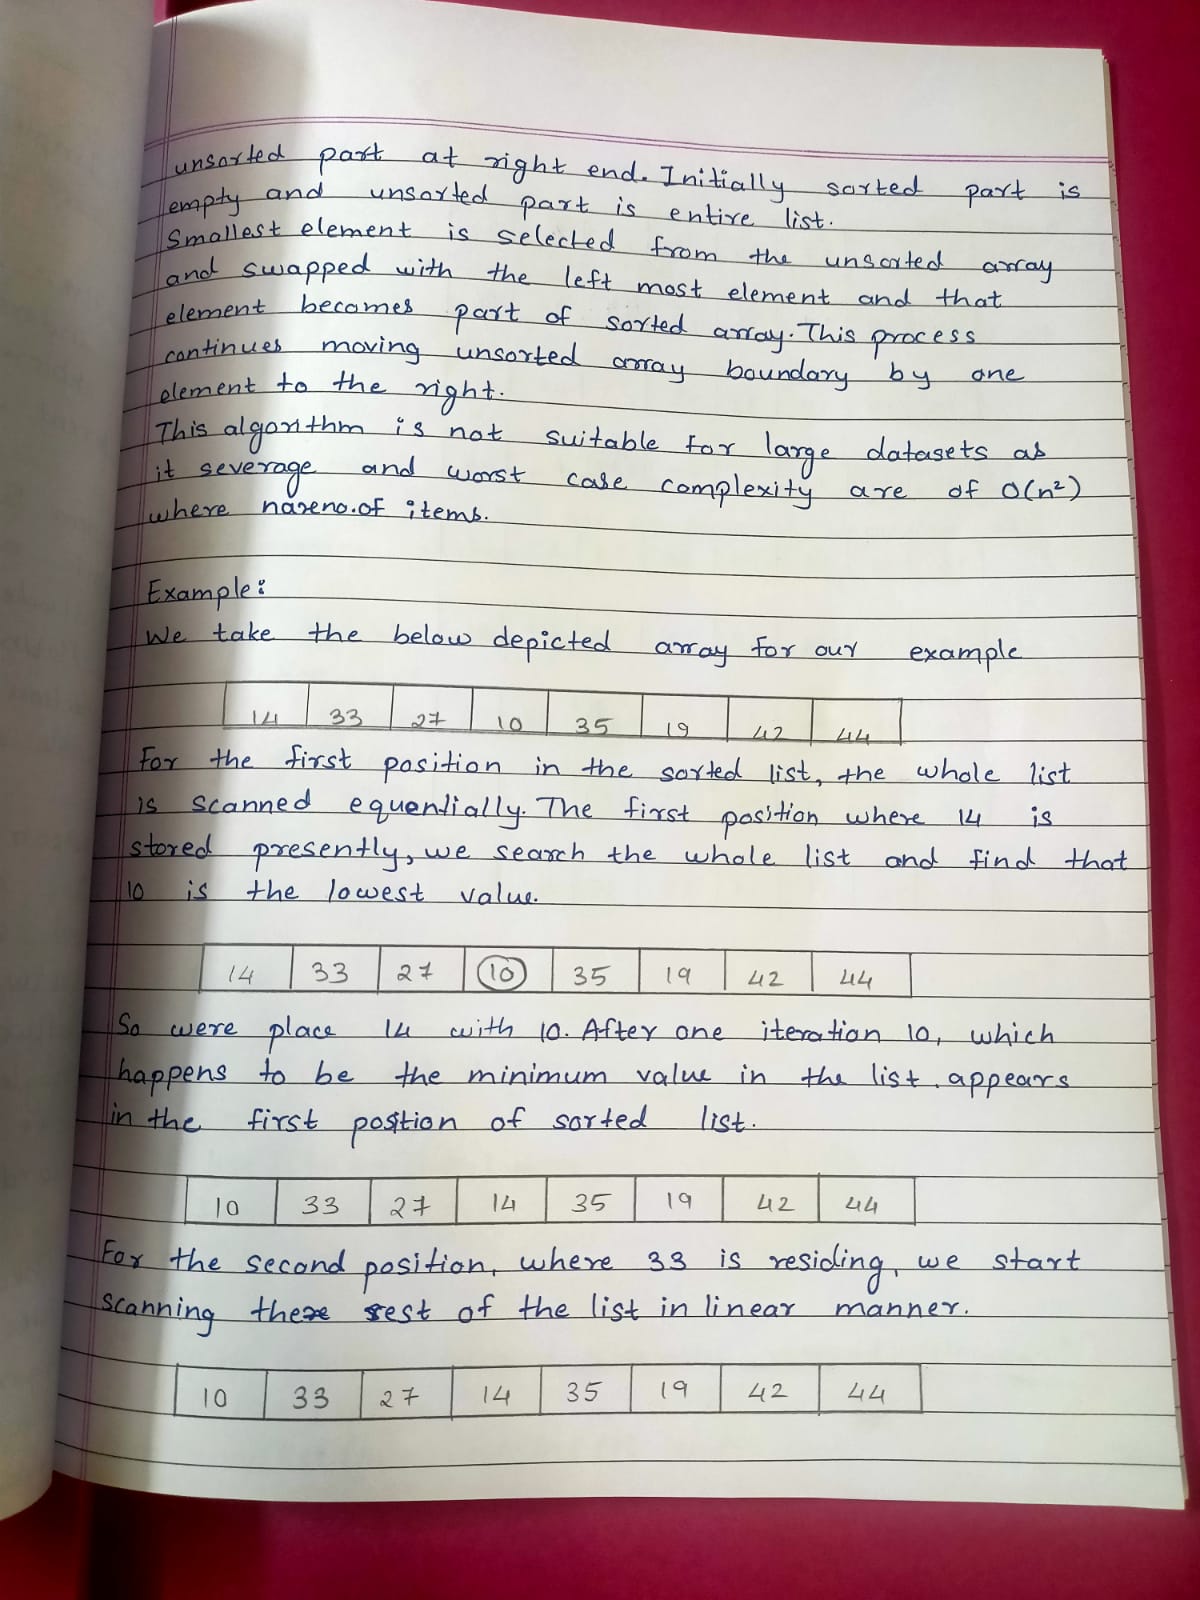 unsorted part at right end. Initially sorted part is
empty and unsorted part is entire list.
Smallest element is selected from the unsorted array
and swapped with the left most element and that
element becomes part of sorted array. This process
continues moving unsorted array boundary by one
element to the right.
This algorithm is not suitable for large datasets as
it severage and worst case complexity are of O(n²)
where nareno.of items.
Example:
We take the below depicted array for our example
14 33 27 10 35 19 42 44
For the first position in the sorted list, the whole list
is scanned equentially. The first position where 14 is
stored presently, we search the whole list and find that
10 is the lowest value.
14 33 27 10 35 19 42 44
So were place 14 with 10. After one iteration 10, which
happens to be the minimum value in the list, appears
in the first position of sorted list.
10 33 27 14 35 19 42 44
For the second position, where 33 is residing, we start
scanning the rest of the list in linear manner.
10 33 27 14 35 19 42 44